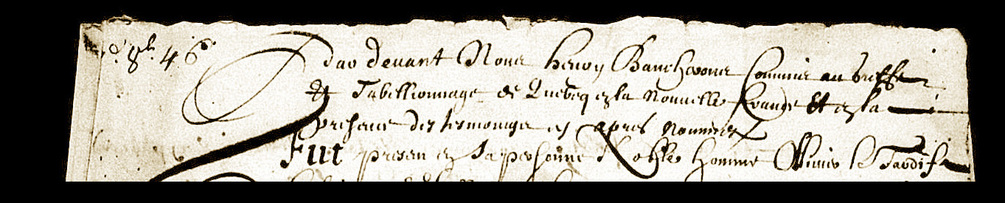 8b. 46
Pdav devant Nous henry Banchevone Commis au Greffe
Et Tabellionnage de Quebecq en la Nouvelle France Et en la
presence des tesmoings cy apres nommez
FUT present en sa personne Noble homme Olivier le Tardif